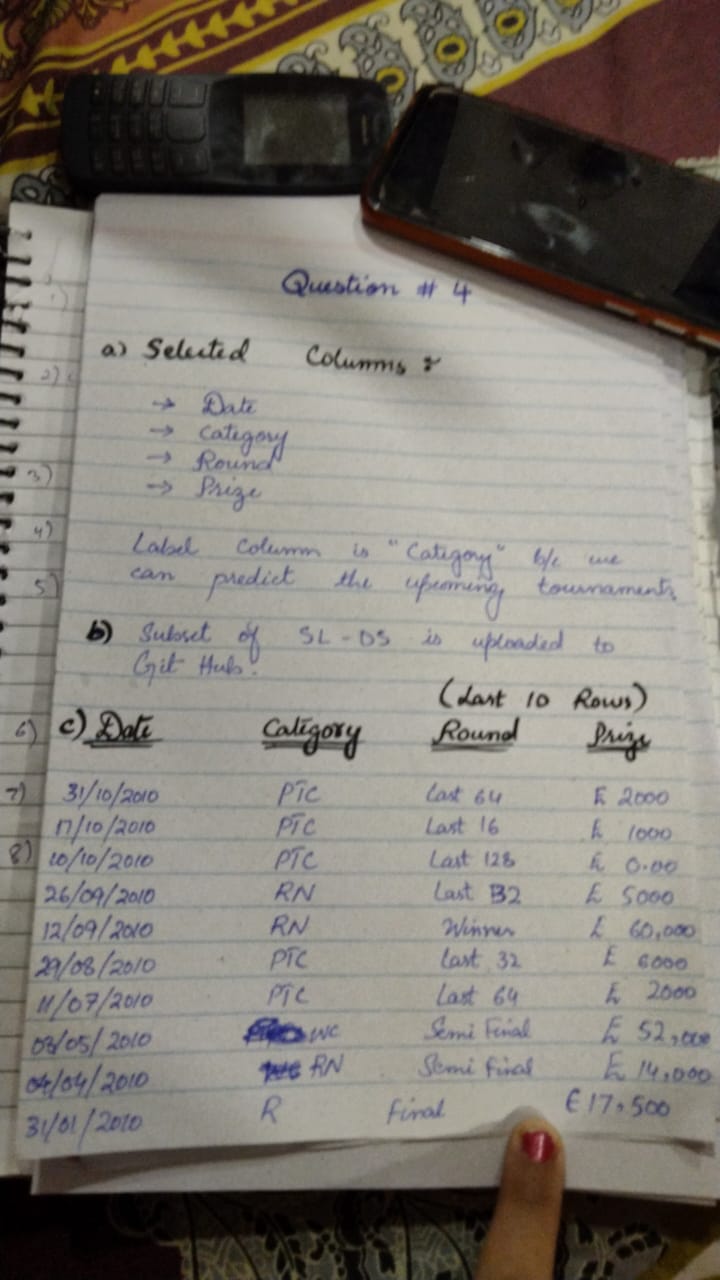 Question # 4
a) Selected Columns :
→ Date
→ Category
→ Round
→ Prize
Label Column is "Category" b/c we
can predict the upcoming tournaments
b) Subset of SL-DS is uploaded to
Git Hub.
(Last 10 Rows)
c) Date Category Round Prize
31/10/2010 PTC Last 64 £ 2000
17/10/2010 PTC Last 16 £ 1000
10/10/2010 PTC Last 128 £ 0.00
26/09/2010 RN Last 32 £ 5000
12/09/2010 RN Winner £ 60,000
29/08/2010 PTC Last 32 £ 6000
11/07/2010 PTC Last 64 £ 2000
03/05/2010 WC Semi Final £ 52,000
04/04/2010 RN Semi final £ 14,000
31/01/2010 R final € 17,500
1)
2)
3)
4)
5)
6)
7)
8)